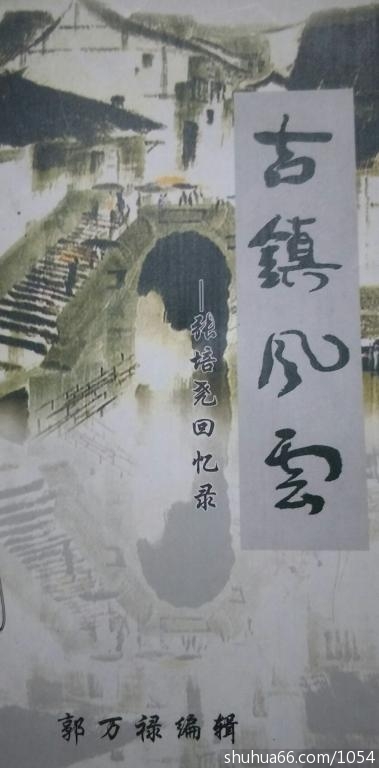 古鎮风雲
—张培尧回忆录
郭万禄编辑
shuhua66.com/1054